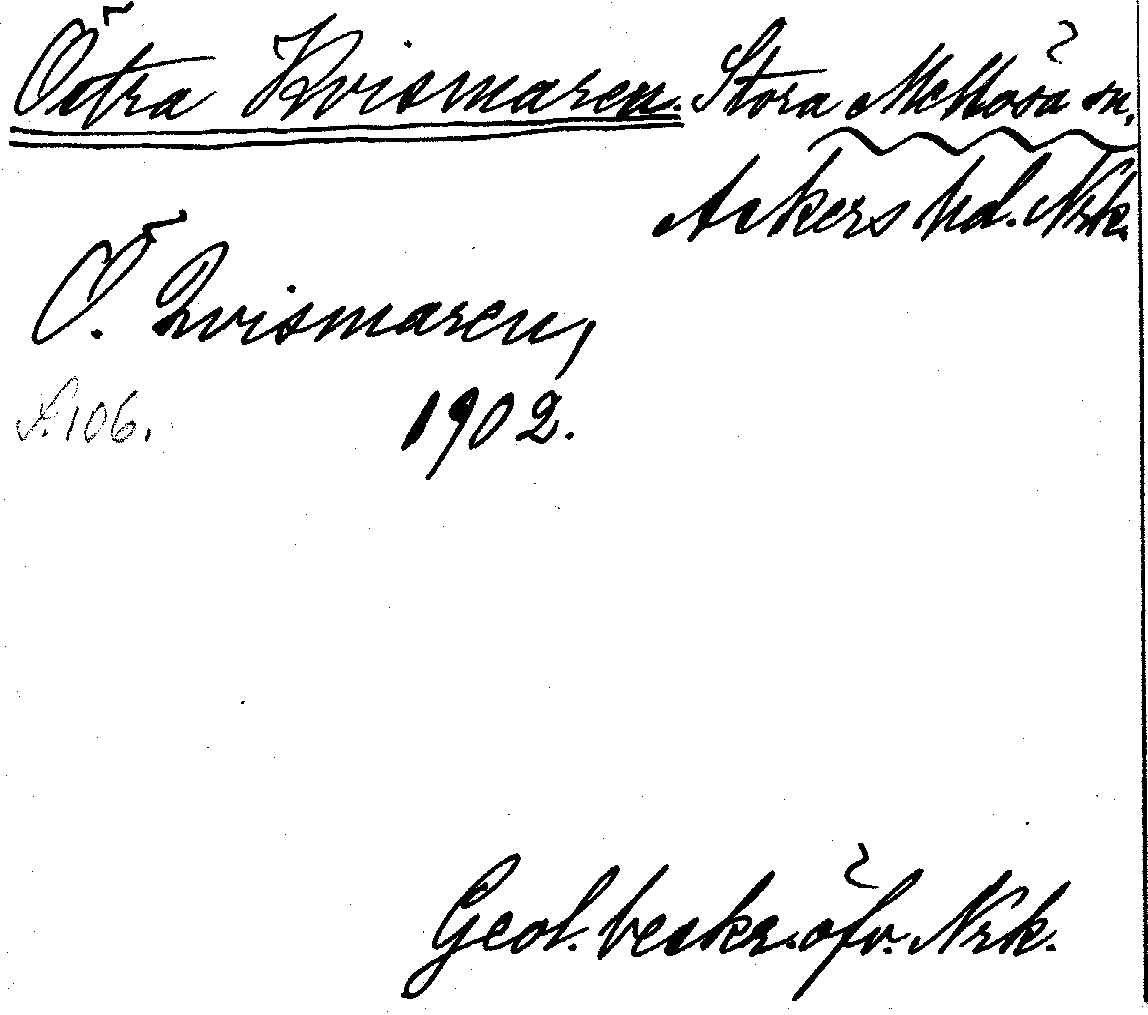 Östra Kvismaren. Stora Mellösa sn,
Askers hd. Nrk.
Ö. Qvismaren,
S. 106. 1902.
Geol. beskr. öfv. Nrk.